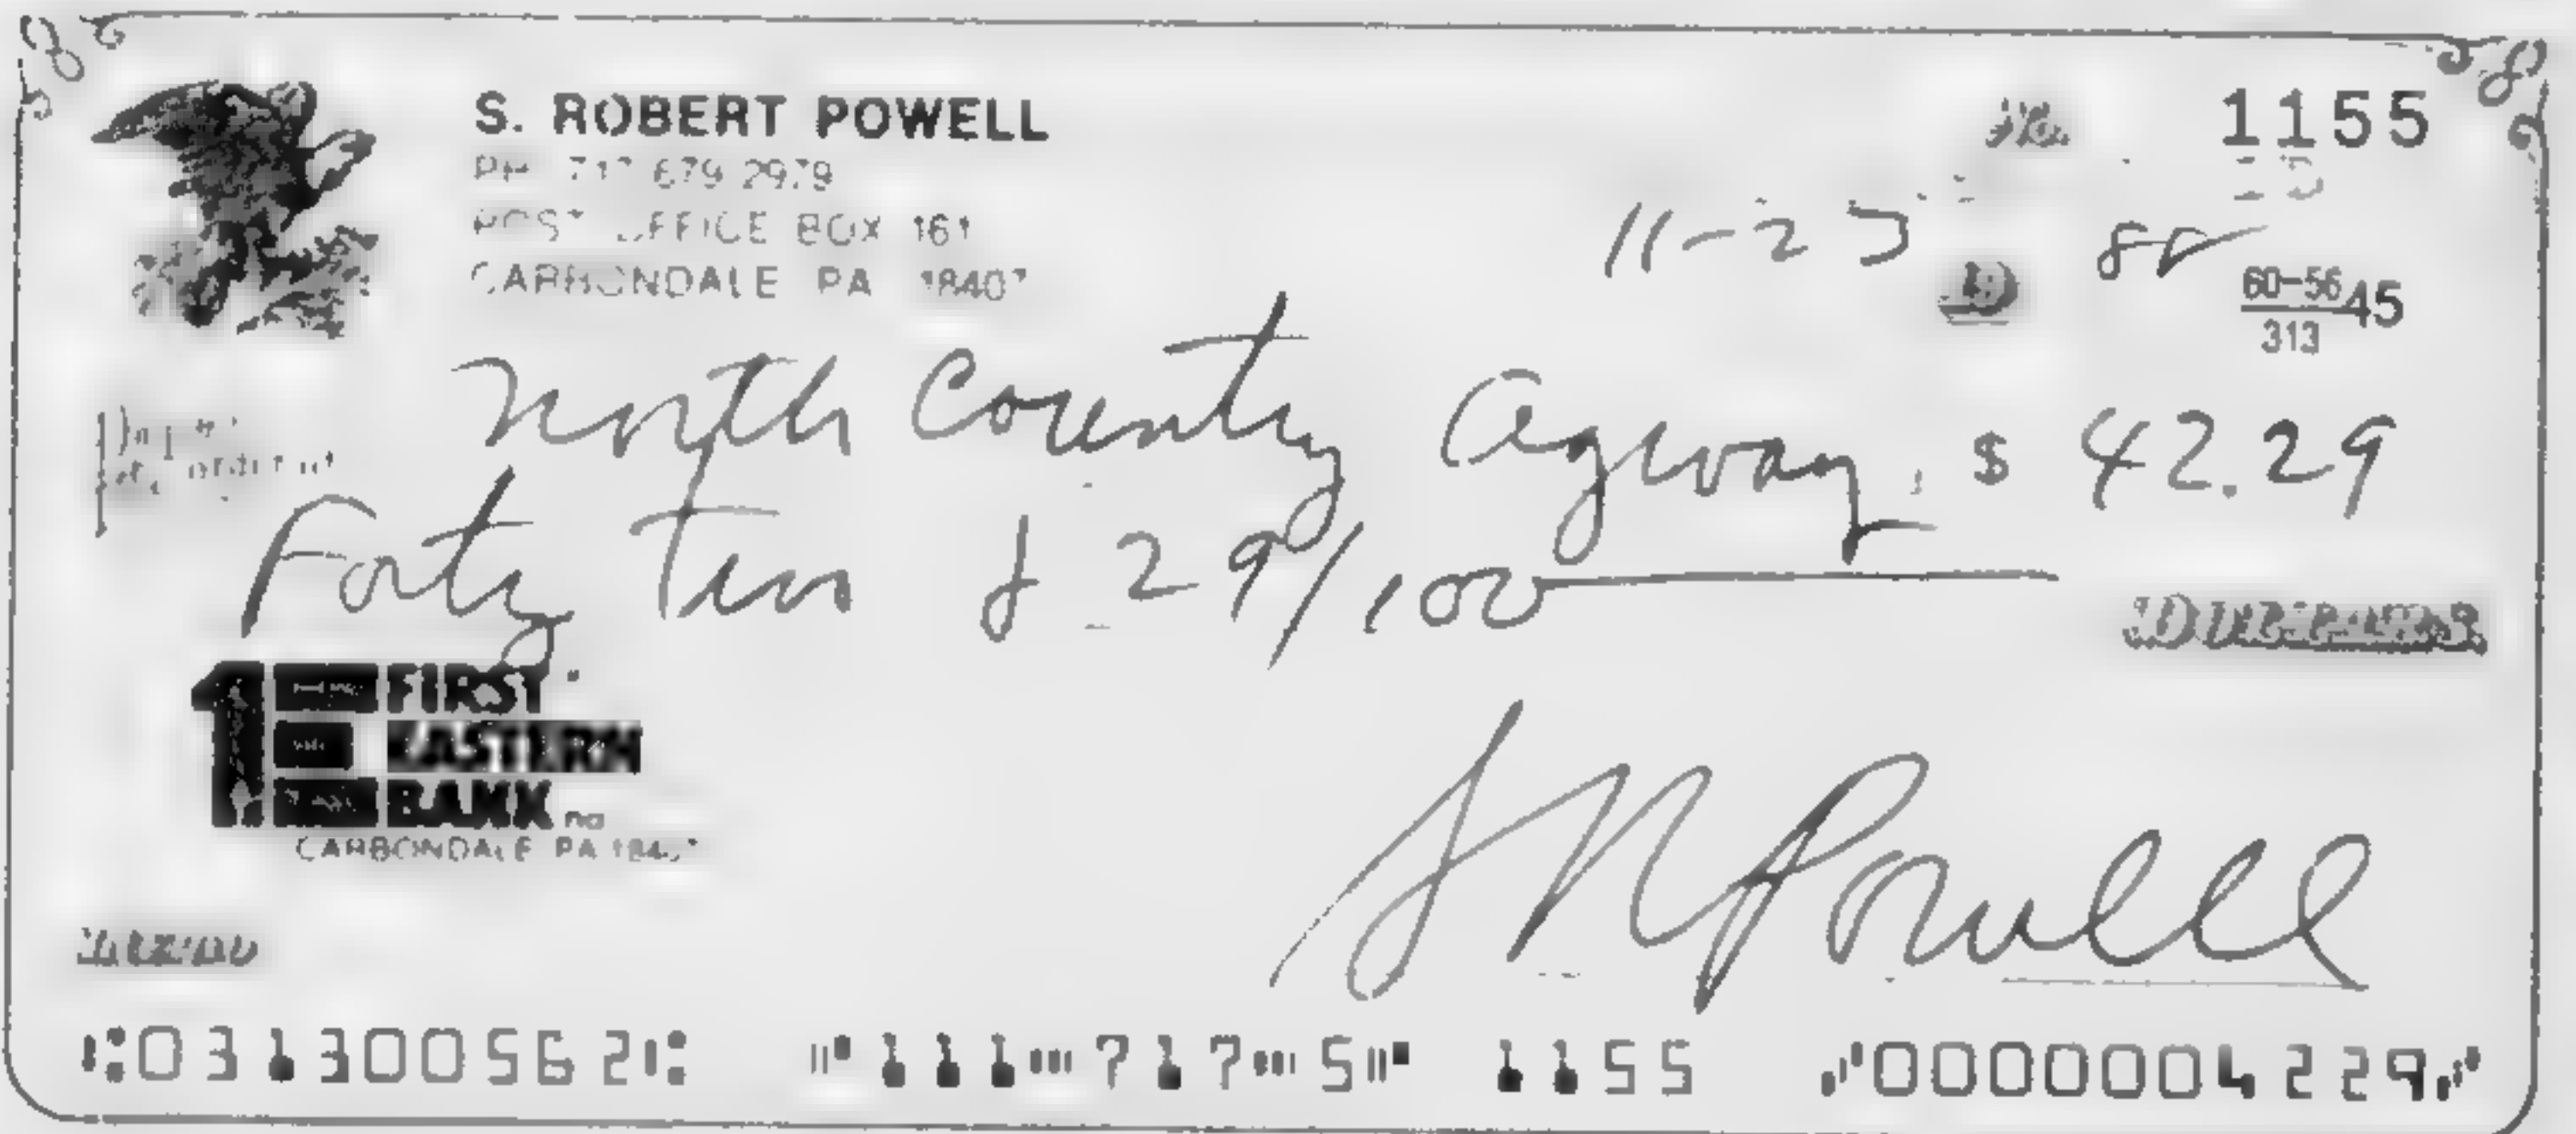 S. ROBERT POWELL
No. 1155
PH 717 679 2979
POST OFFICE BOX 161
CARBONDALE PA 18407
11-25 19 88
60-56 45
313
Pay to
the order of
North County Agway $ 42.29
Forty Two & 29/100 Dollars
1E FIRST
EASTERN
BANK na
CARBONDALE PA 18407
S R Powell
Memo
⑆031300562⑆ ⑈111⑉717⑉5⑈ 1155 ⑇0000004229⑇